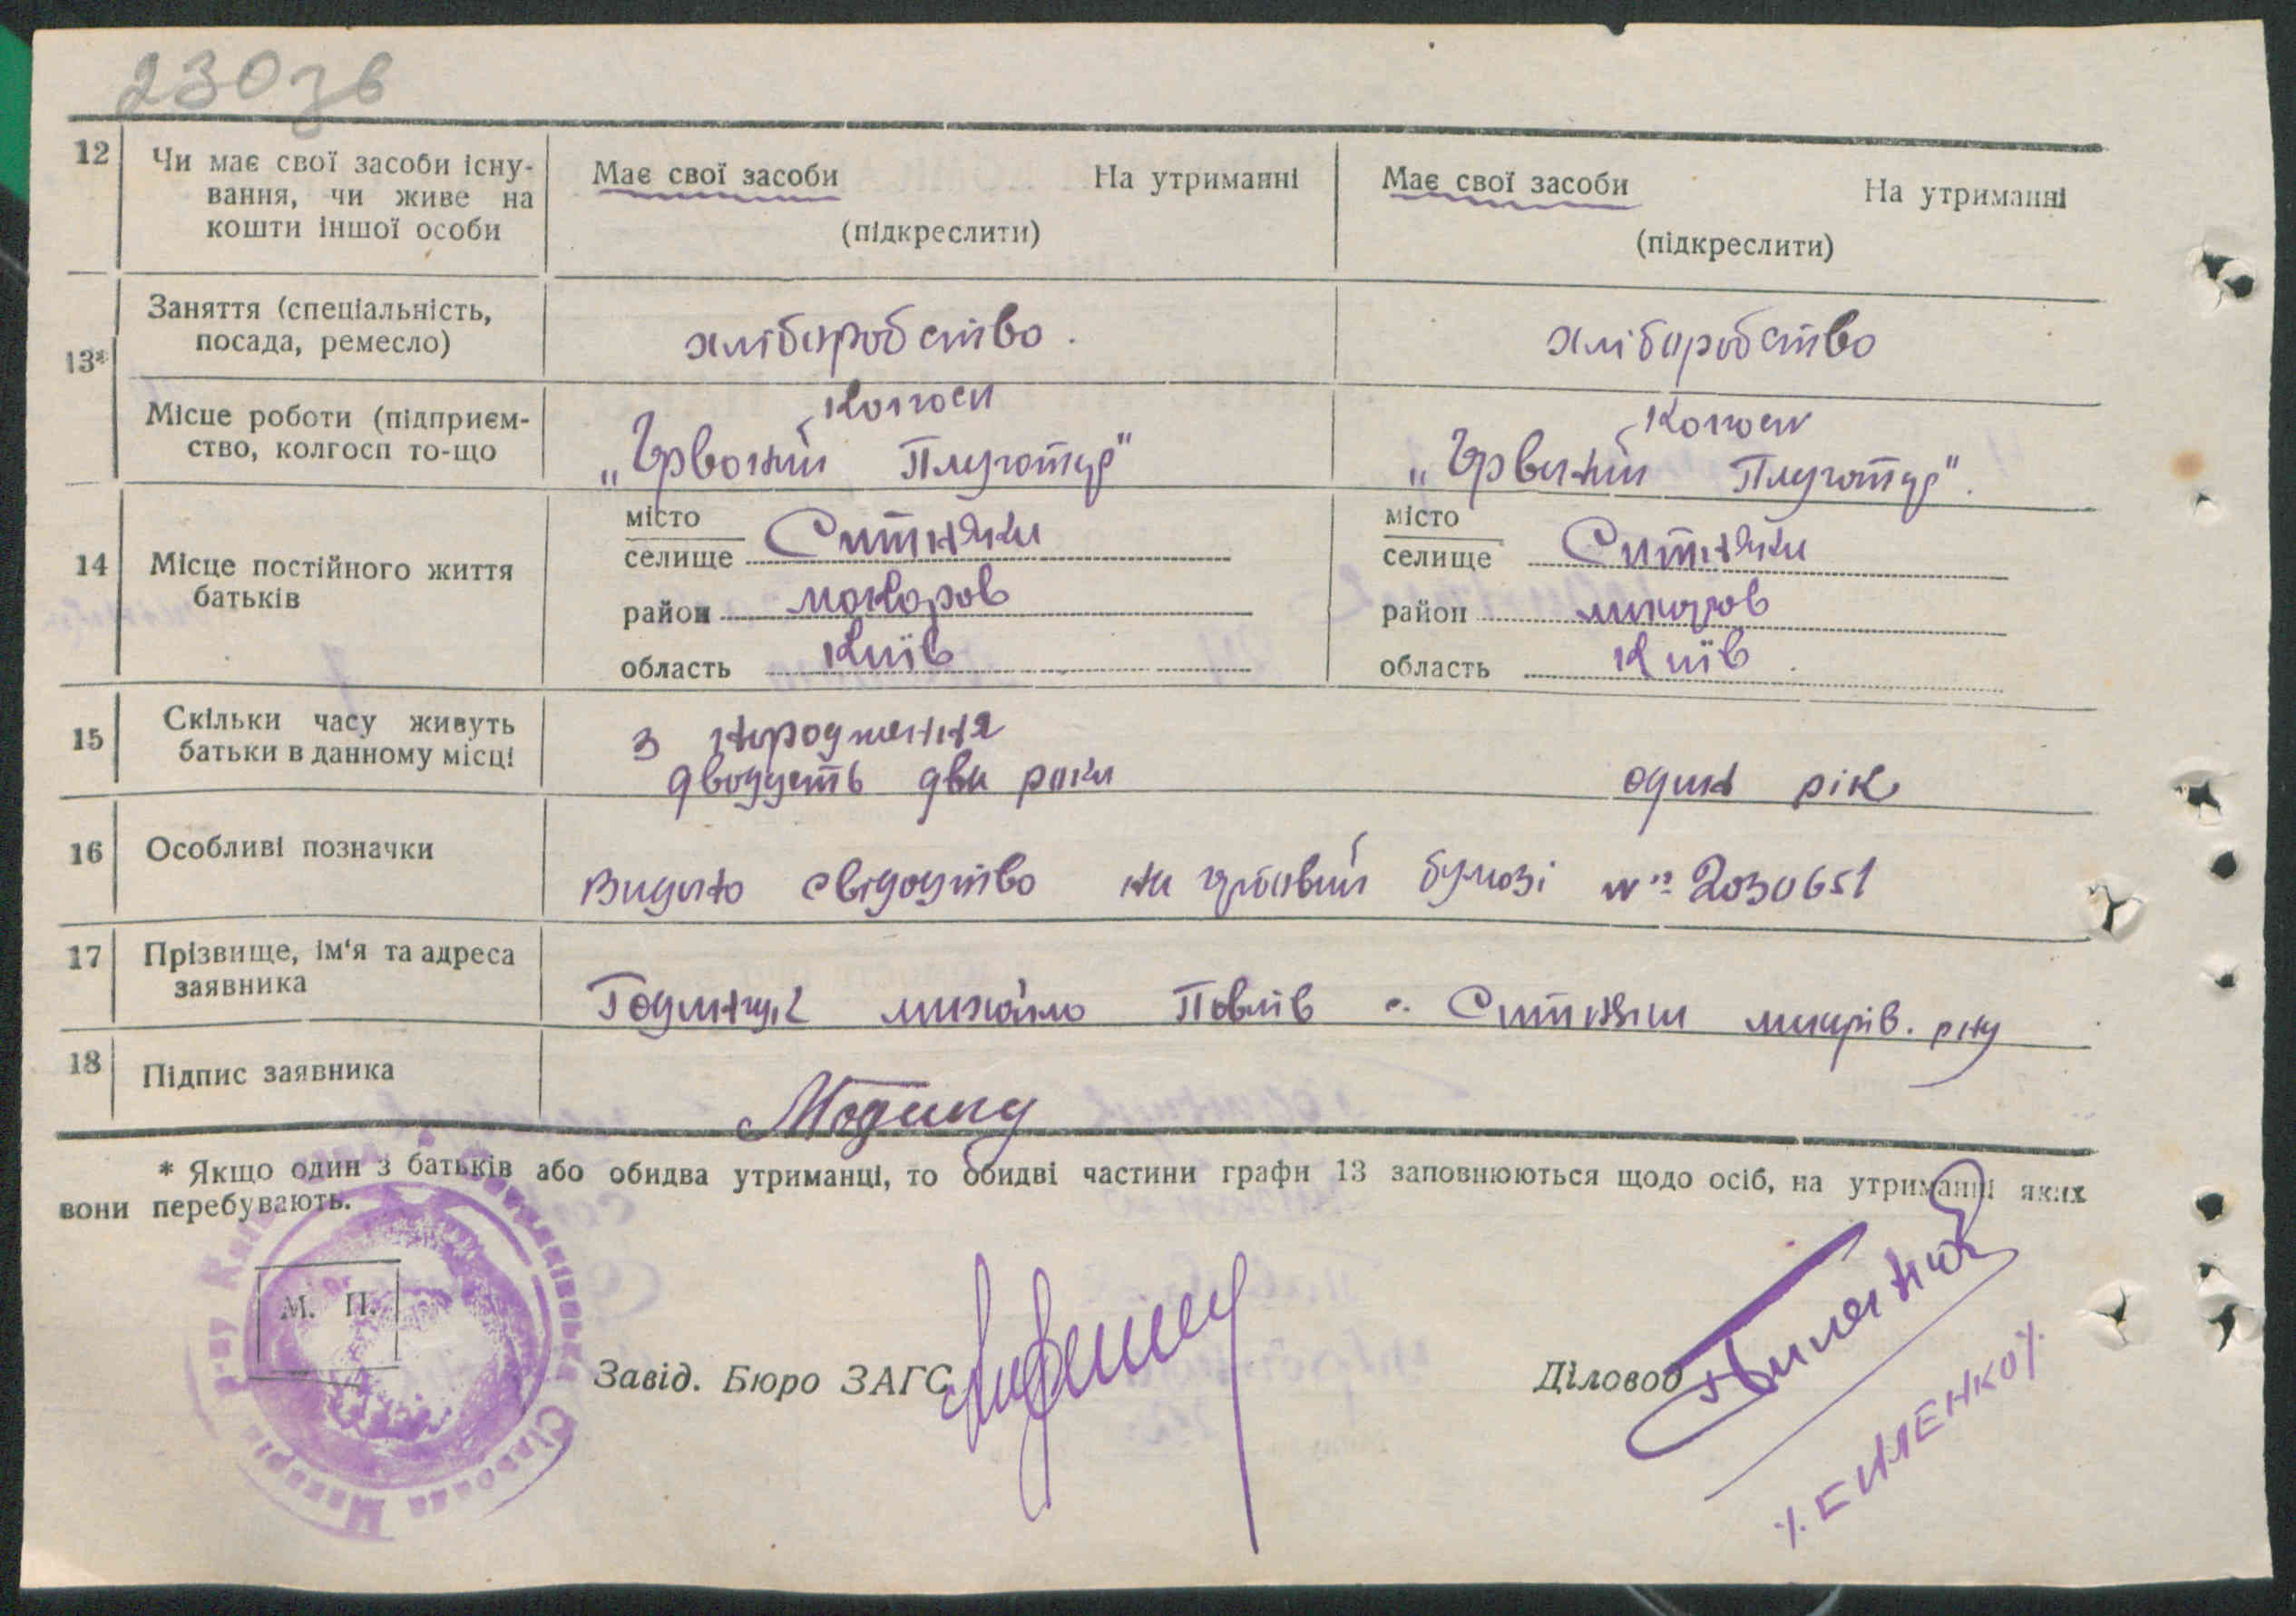 230зв
12 Чи має свої засоби існу- Має свої засоби На утриманні Має свої засоби На утриманні
вання, чи живе на
кошти іншої особи (підкреслити) (підкреслити)
13* Заняття (спеціальність,
посада, ремесло) хліборобство. хліборобство
Місце роботи (підприєм- Колгосп Колгосп
ство, колгосп то-що „Червоний Плугатар" „Червоний Плугатар".
14 Місце постійного життя
батьків
місто
селище Ситняки
район Макаров
область Київ
місто
селище Ситняки
район Макаров
область Київ.
15 Скільки часу живуть з народження
батьки в данному місці двадцеть два роки один рік
16 Особливі позначки
Видано свідоцтво на бумозі № 2030651
17 Прізвище, ім'я та адреса
заявника
Михайло Павлів с. Ситняки макарів. рну
18 Підпис заявника
* Якщо один з батьків або обидва утриманці, то обидві частини графи 13 заповнюються щодо осіб, на утриманні яких
вони перебувають.
М. П.
Завід. Бюро ЗАГС
Діловод